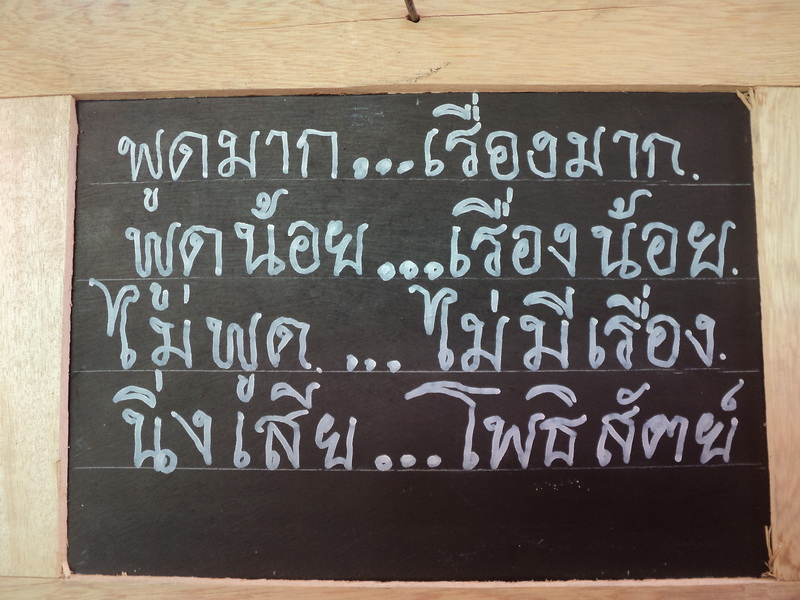 พูดมาก...เรื่องมาก.
พูดน้อย...เรื่องน้อย.
ไม่พูด. ... ไม่มีเรื่อง.
นิ่งเสีย...โพธิสัตย์